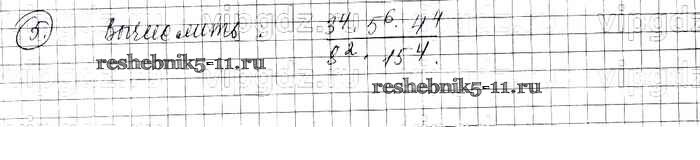 5. Вычислить: 3⁴ · 5⁶ · 4⁴
8² · 15⁴.
reshebnik5-11.ru
reshebnik5-11.ru